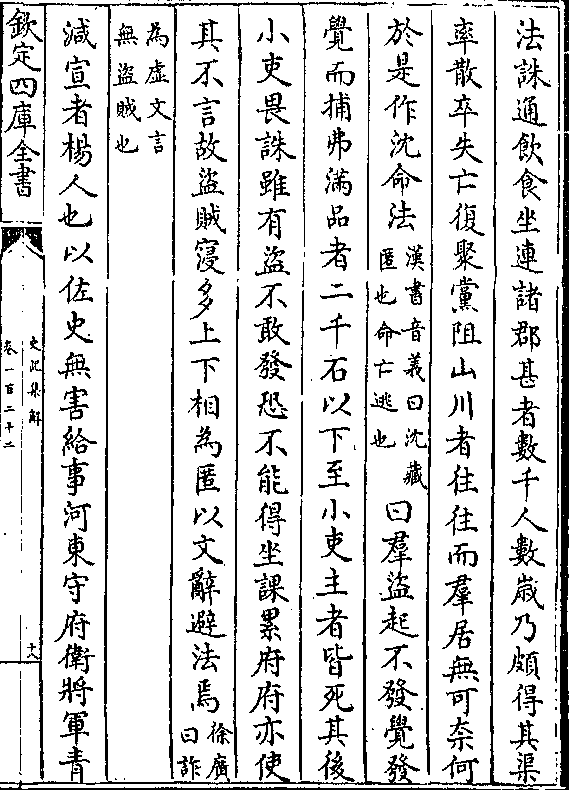 法誅通飲食坐連諸郡甚者數千人數嵗乃頗得其渠
率散卒失亡復聚黨阻山川者往往而羣居無可奈何
於是作沈命法漢書音義曰沈藏匿也命亡逃也曰羣盜起不發覺發
覺而捕弗滿品者二千石以下至小吏主者皆死其後
小吏畏誅雖有盜不敢發恐不能得坐課累府府亦使
其不言故盜賊寖多上下相為匿以文辭避法焉徐廣曰詐
為虛文言無盜賊也
減宣者楊人也以佐史無害給事河東守府衛將軍青
欽定四庫全書
史記集解
卷一百二十二